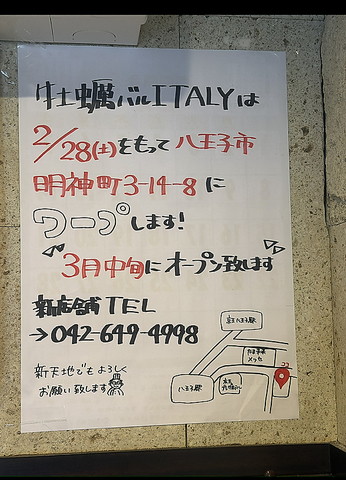 牡蠣バルITALYは
2/28(土)をもって八王子市
明神町3-14-8に
ワープします!
3月中旬にオープン致します
新店舗TEL
→042-649-4998
新天地でもよろしく
お願い致します
京王八王子駅
八王子駅
ココ